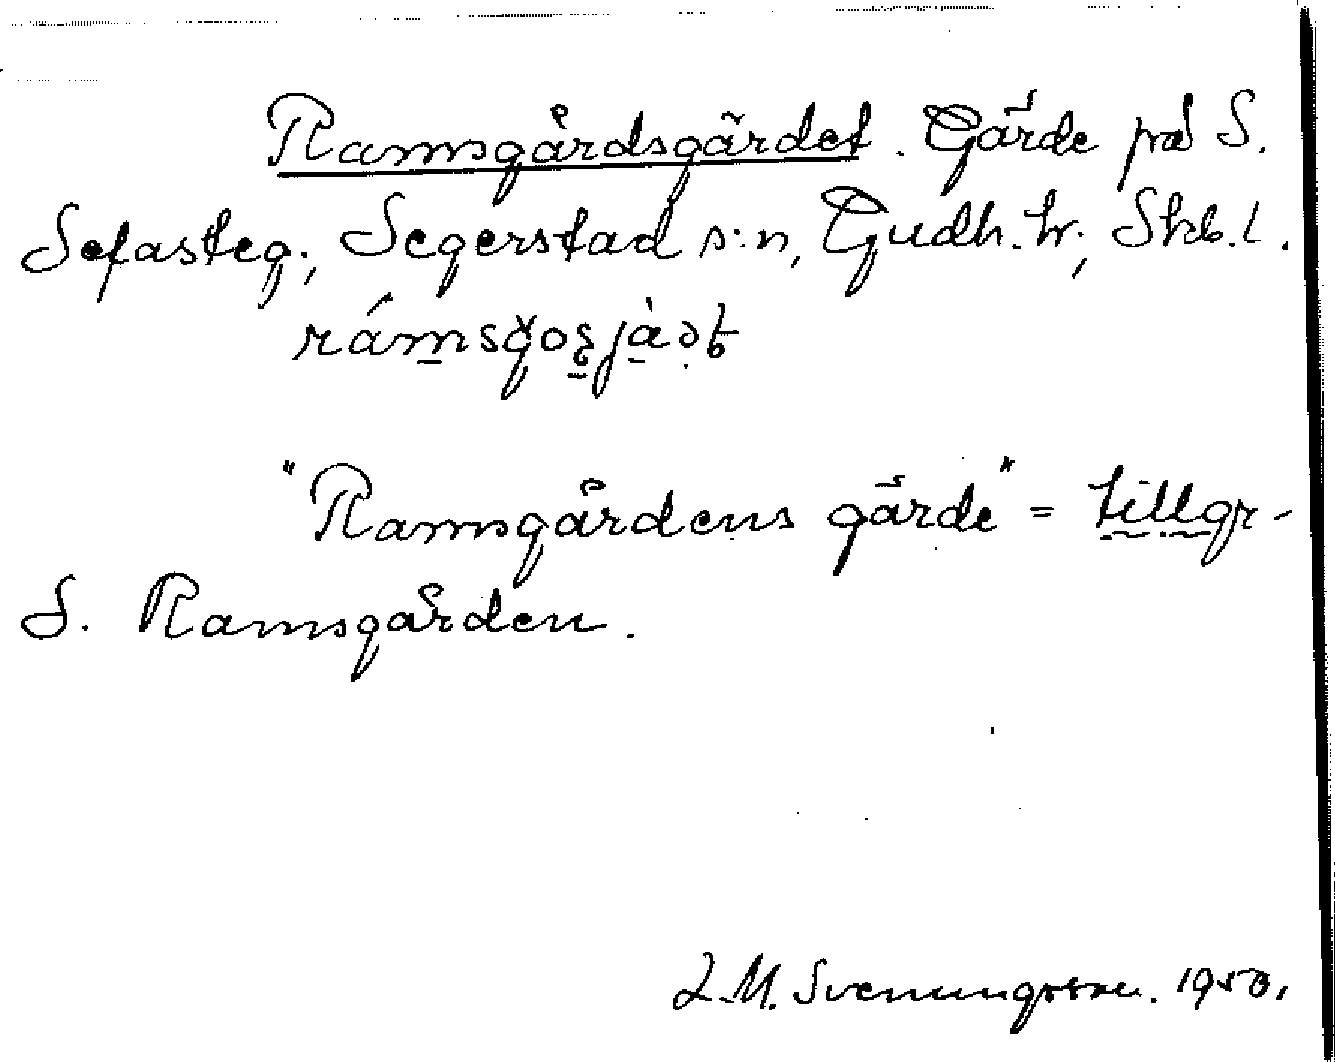 Ramsgårdsgärdet. Gärde på S.
Sefasteg., Segerstad s:n, Gudh. hr, Skb. l.
"Ramsgårdens gärde" = tillgr
S. Ramsgården.
L.M. Svenungsson. 1950.